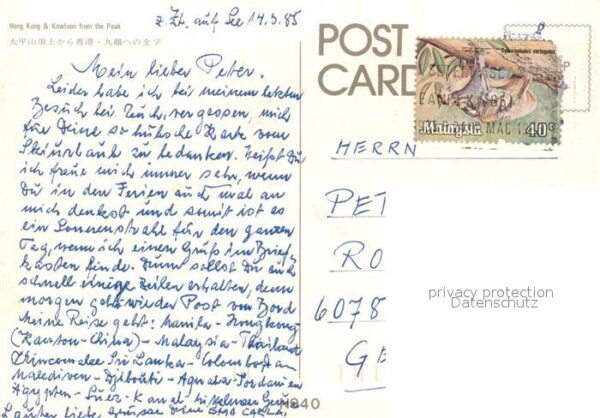 z. Zt. auf See 14.3.85
Hong Kong & Kowloon from the Peak
太平山頂上から香港・九龍への全字
Mein lieber Peter.
Leider habe ich bei meinem letzten
Besuch bei Euch, vergessen, mich
für Deine so hübsche Karte vom
Skiurlaub zu bedanken. Weißt Du,
ich freue mich immer sehr, wenn
Du in den Ferien auch mal an
mich denkst und somit ist es
ein Sonnenstrahl für den ganzen
Tag, wenn ich einen Gruß im Brief-
kasten finde. Nun sollst Du auch
schnell einige Zeilen erhalten, denn
morgen geht wieder Post von Bord
Meine Reise geht: Manila - Hongkong
(Kanton-China) - Malaysia - Thailand
Trincomalee Sri Lanka - Colombo
Malediven - Djibouti - Aqaba - Jordanien
Ägypten - Suez-Kanal -
Lauter liebe Grüsse Deine
H940
POST
CARD
Malaysia 40c
HERRN
PET
RO
6078
GE
privacy protection
Datenschutz